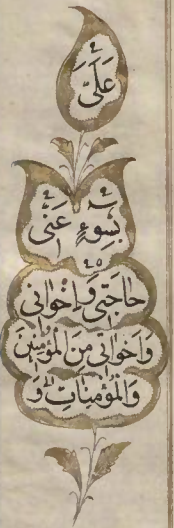 عَلَيَّ
بِسُوءٍ عَنّٖى
حَاجَتٖى وَاِخْوَانٖى
وَاَخَوَاتٖى مِنَ الْمُؤْمِنٖينَ
وَالْمُؤْمِنَاتِ وَ